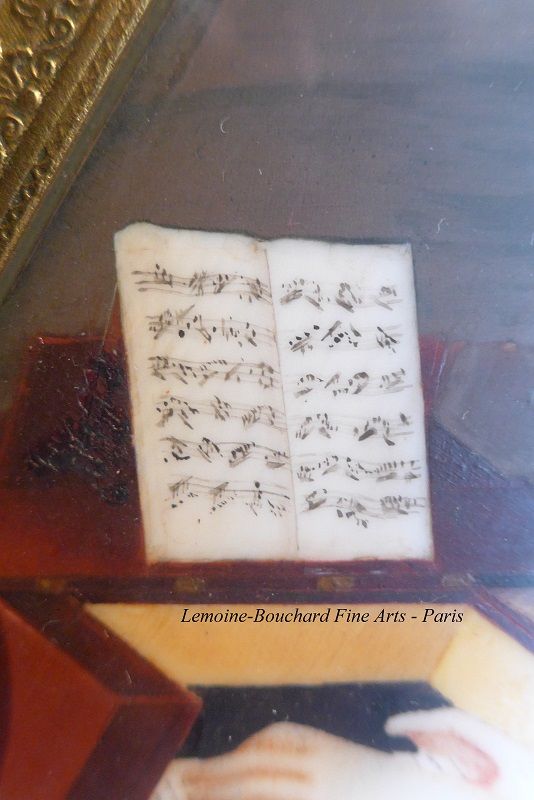 Lemoine-Bouchard Fine Arts - Paris